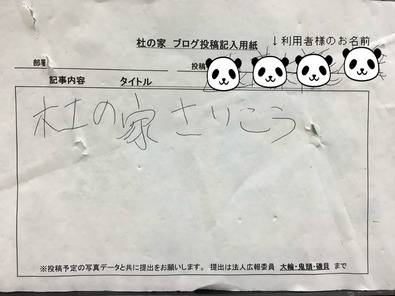 ↓利用者様のお名前
杜の家 ブログ投稿記入用紙
部署
投稿
記事内容 タイトル
杜の家さりこう
※投稿予定の写真データと共に提出をお願いします。 提出は法人広報委員 大輪・鬼頭・磯貝 まで